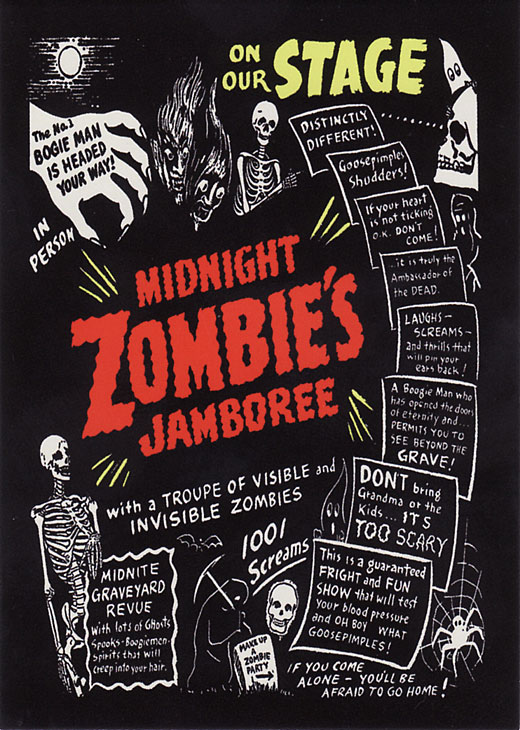 ON
OUR STAGE
The No.1
BOGIE MAN
IS HEADED
YOUR WAY!
IN
PERSON
DISTINCTLY
DIFFERENT!
Goosepimples
Shudders!
If your heart
is not ticking
O.K. DON'T
COME!
...it is truly the
Ambassador of
the DEAD.
LAUGHS-
SCREAMS-
and thrills that
will pin your
ears back!
A Boogie Man who
has opened the doors
of eternity and...
PERMITS YOU TO
SEE BEYOND THE
GRAVE!
DONT bring
Grandma or the
Kids... IT'S
TOO SCARY
MIDNIGHT
ZOMBIE'S
JAMBOREE
with a TROUPE OF VISIBLE and
INVISIBLE ZOMBIES
1001
Screams
This is a guaranteed
FRIGHT and FUN
SHOW that will test
your blood pressure
and OH BOY WHAT
GOOSEPIMPLES!
MIDNITE
GRAVEYARD
REVUE
With lots of Ghosts
Spooks-Boogiemen-
Spirits that will
creep into your hair.
MAKE UP
A
ZOMBIE
PARTY
IF YOU COME
ALONE - YOU'LL BE
AFRAID TO GO HOME!